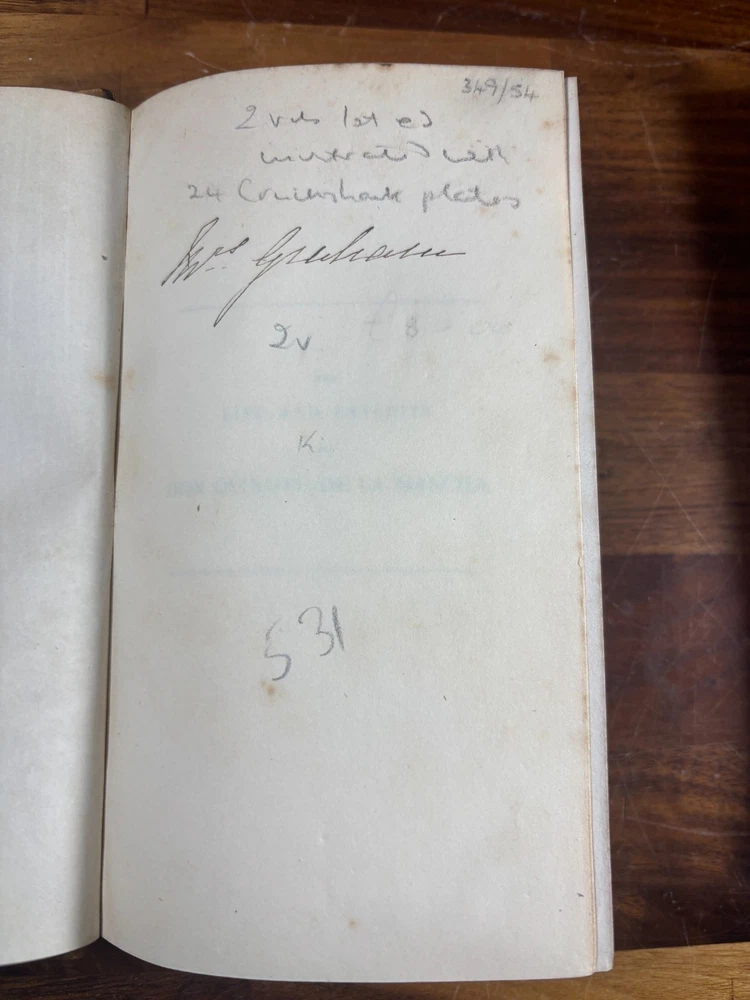 349/54
2 vols 1st ed
illustrated with
24 Cruikshank plates
Mrs. Graham
2v
K
531